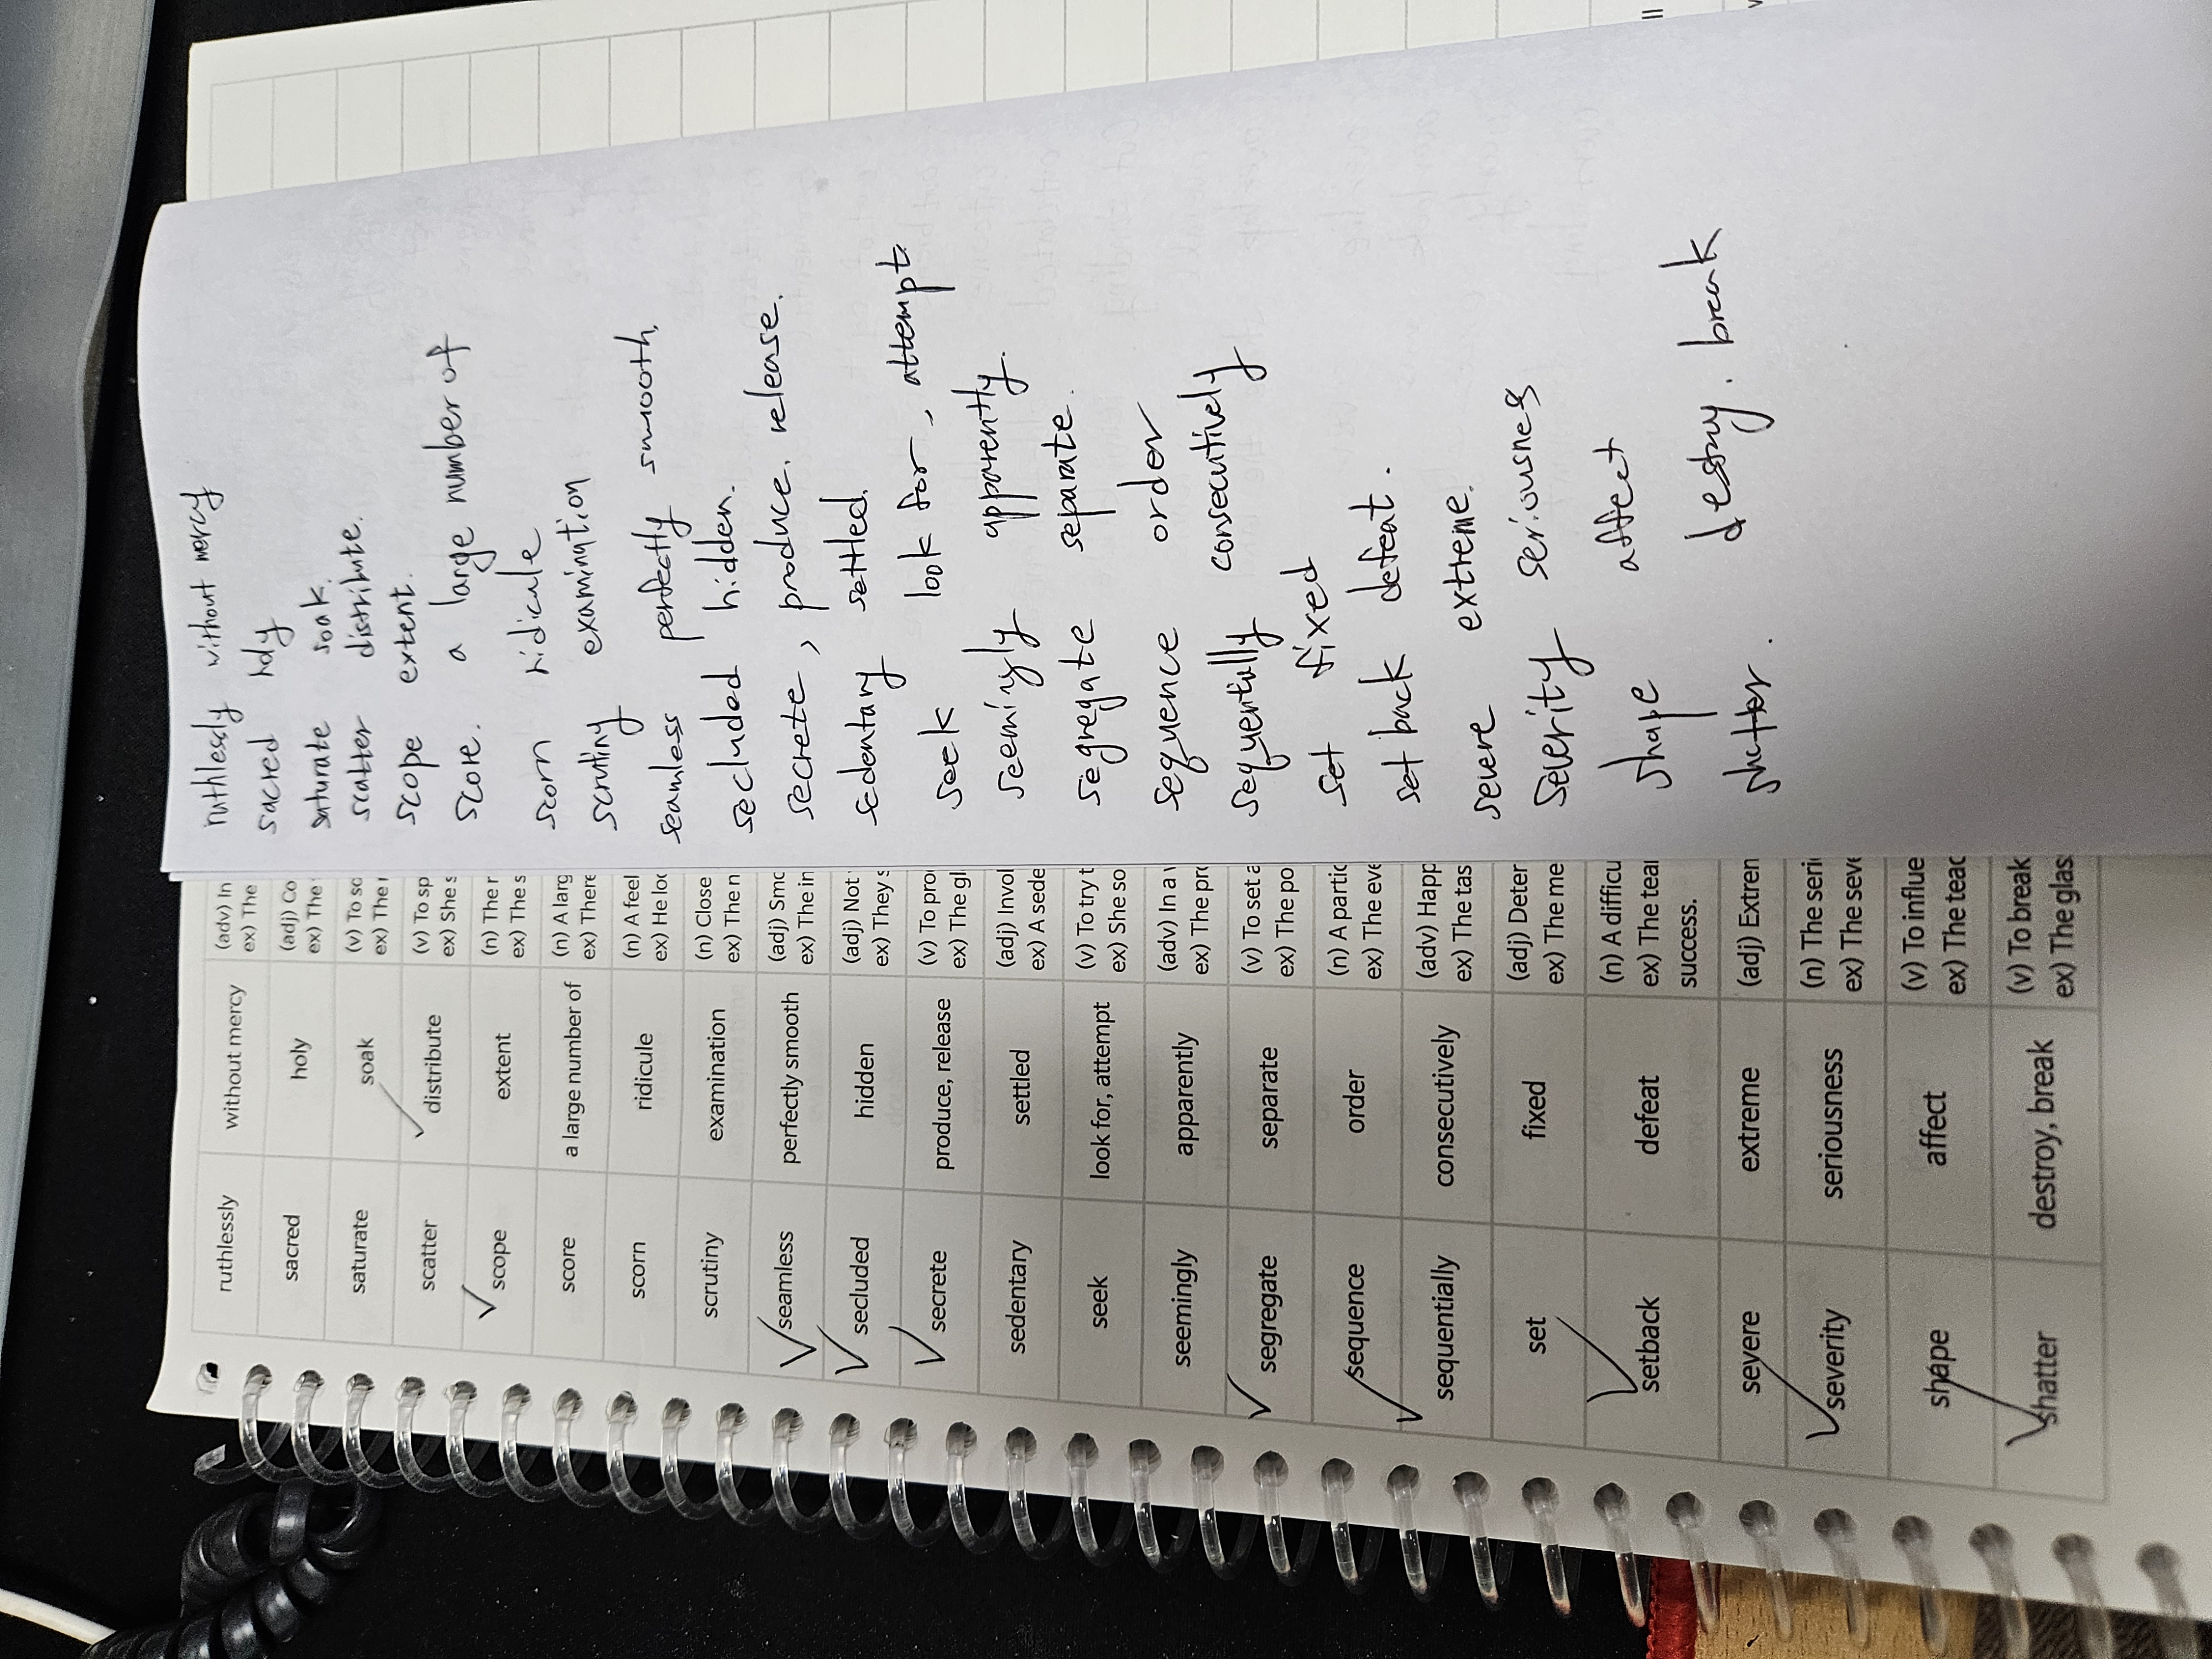 ruthlessly without mercy (adv) In
ex) The
sacred holy (adj) Co
ex) The
saturate soak (v) To so
ex) The
scatter distribute (v) To sp
ex) She s
scope extent (n) The r
ex) The s
score a large number of (n) A larg
ex) There
scorn ridicule (n) A feel
ex) He loo
scrutiny examination (n) Close
ex) The n
seamless perfectly smooth (adj) Smo
ex) The in
secluded hidden (adj) Not
ex) They s
secrete produce, release (v) To pro
ex) The gl
sedentary settled (adj) Invol
ex) A sede
seek look for, attempt (v) To try t
ex) She so
seemingly apparently (adv) In a
ex) The pr
segregate separate (v) To set a
ex) The po
sequence order (n) A partic
ex) The eve
sequentially consecutively (adv) Happ
ex) The tas
set fixed (adj) Deter
ex) The me
setback defeat (n) A difficu
ex) The tea
success.
severe extreme (adj) Extren
severity seriousness (n) The seri
ex) The seve
shape affect (v) To influe
ex) The teac
shatter destroy, break (v) To break
ex) The glas
ruthlessly without mercy
sacred holy
saturate soak.
scatter distribute.
scope extent.
score. a large number of
scorn ridicule
scrutiny examination
seamless perfectly smooth.
secluded hidden.
secrete, produce, release.
sedentary settled.
seek look for, attempt.
seemingly apparently.
segregate separate.
sequence order
sequentially consecutively
set fixed
set back defeat.
severe extreme.
severity seriousness
shape affect
shatter. destroy. break